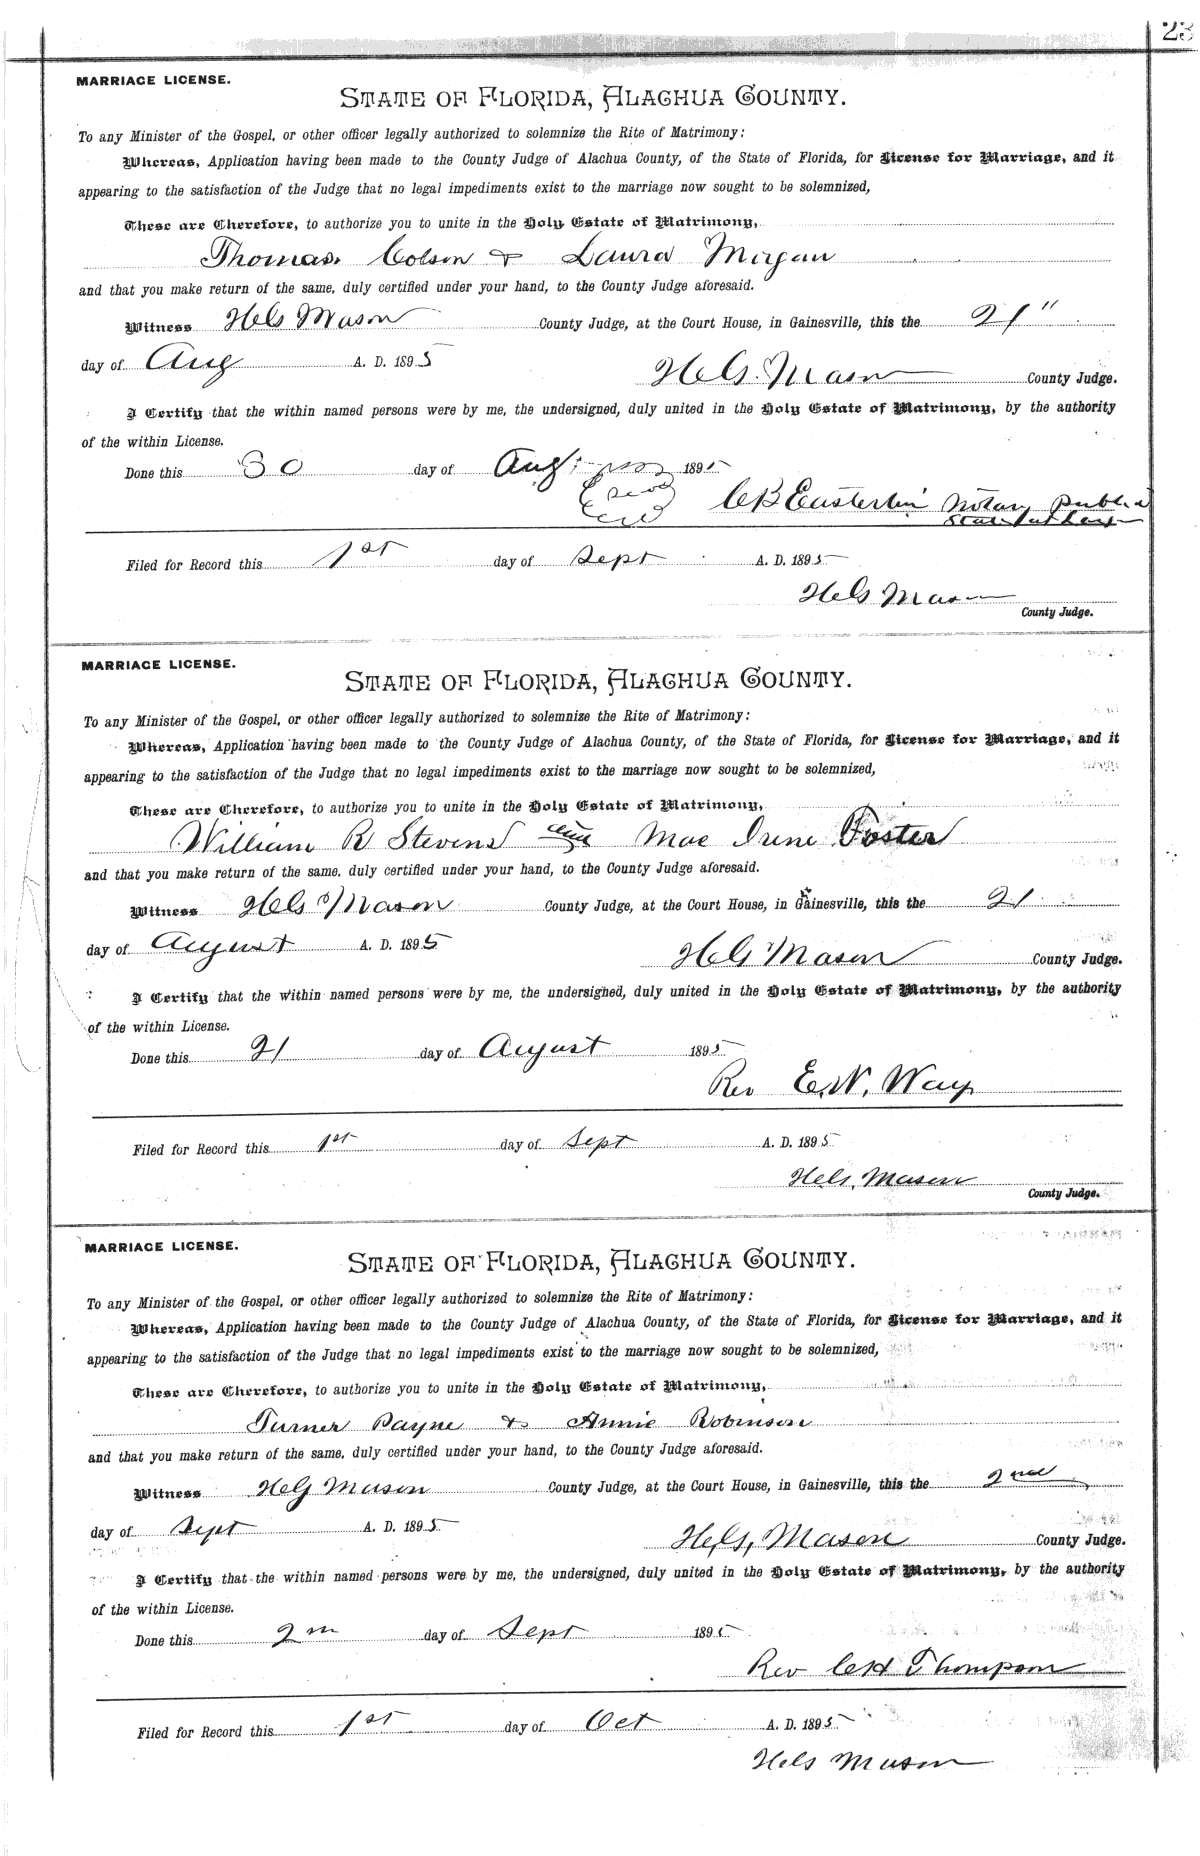 23
MARRIAGE LICENSE.
STATE OF FLORIDA, ALACHUA COUNTY.
To any Minister of the Gospel, or other officer legally authorized to solemnize the Rite of Matrimony:
Whereas, Application having been made to the County Judge of Alachua County, of the State of Florida, for License for Marriage, and it
appearing to the satisfaction of the Judge that no legal impediments exist to the marriage now sought to be solemnized,
These are Therefore, to authorize you to unite in the Holy Estate of Matrimony,
Thomas Colson & Laura Morgan
and that you make return of the same, duly certified under your hand, to the County Judge aforesaid.
Witness H G Mason County Judge, at the Court House, in Gainesville, this the 21"
day of Aug A. D. 1895 H. G. Mason County Judge.
I Certify that the within named persons were by me, the undersigned, duly united in the Holy Estate of Matrimony, by the authority
of the within License.
Done this 30 day of Aug 1895
C B Easterlin Notary Public
State at Large
Filed for Record this 1st day of Sept A. D. 1895
H G Mason
County Judge.
MARRIAGE LICENSE.
STATE OF FLORIDA, ALACHUA COUNTY.
To any Minister of the Gospel, or other officer legally authorized to solemnize the Rite of Matrimony:
Whereas, Application having been made to the County Judge of Alachua County, of the State of Florida, for License for Marriage, and it
appearing to the satisfaction of the Judge that no legal impediments exist to the marriage now sought to be solemnized,
These are Therefore, to authorize you to unite in the Holy Estate of Matrimony,
William R Stevens and Mae Irene Foster
and that you make return of the same, duly certified under your hand, to the County Judge aforesaid.
Witness H G Mason County Judge, at the Court House, in Gainesville, this the 21
day of August A. D. 1895 H G Mason County Judge.
I Certify that the within named persons were by me, the undersigned, duly united in the Holy Estate of Matrimony, by the authority
of the within License.
Done this 21 day of August 1895
Rev E. W. Way
Filed for Record this 1st day of Sept A. D. 1895
H G. Mason
County Judge.
MARRIAGE LICENSE.
STATE OF FLORIDA, ALACHUA COUNTY.
To any Minister of the Gospel, or other officer legally authorized to solemnize the Rite of Matrimony:
Whereas, Application having been made to the County Judge of Alachua County, of the State of Florida, for License for Marriage, and it
appearing to the satisfaction of the Judge that no legal impediments exist to the marriage now sought to be solemnized,
These are Therefore, to authorize you to unite in the Holy Estate of Matrimony,
Turner Payne & Annie Robinson
and that you make return of the same, duly certified under your hand, to the County Judge aforesaid.
Witness H G Mason County Judge, at the Court House, in Gainesville, this the 2nd
day of Sept A. D. 1895 H. G. Mason County Judge.
I Certify that the within named persons were by me, the undersigned, duly united in the Holy Estate of Matrimony, by the authority
of the within License.
Done this 2nd day of Sept 1895
Rev C H Thompson
Filed for Record this 1st day of Oct A. D. 1895
H G Mason